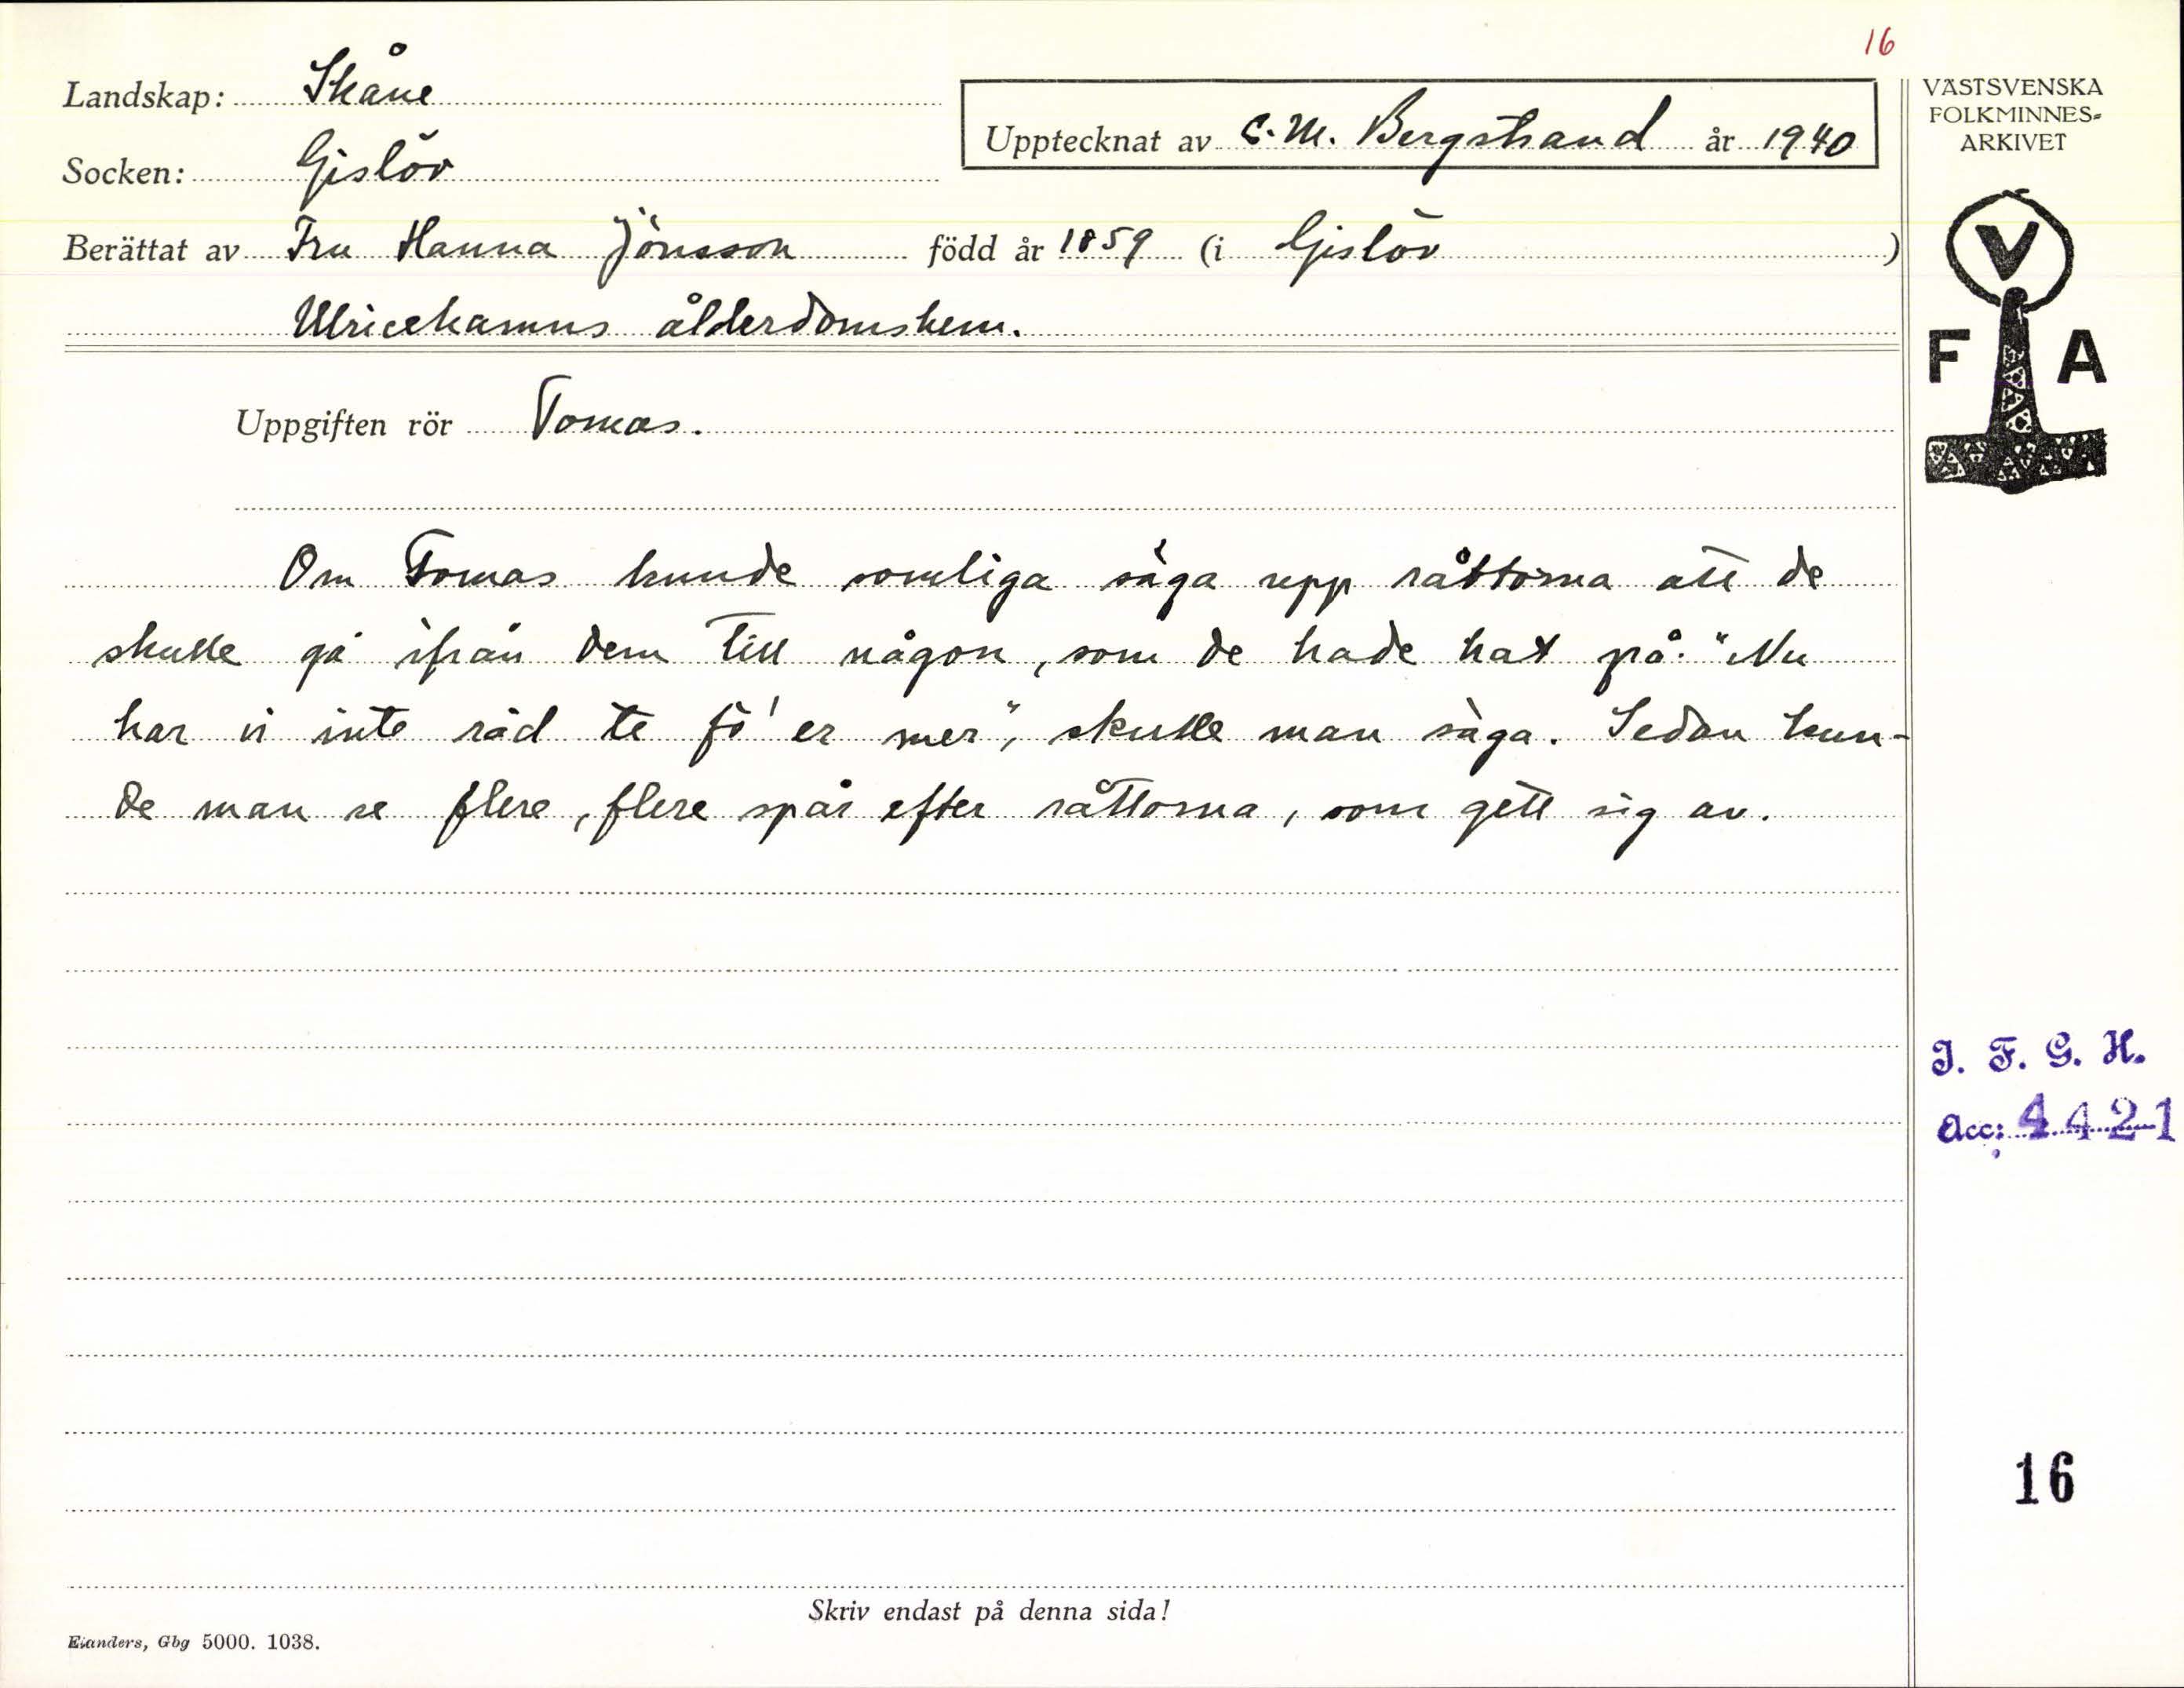 16
Landskap: Skåne
Socken: Gislöv
Upptecknat av C. M. Bergstrand år 1940
Berättat av Fru Hanna Jönsson född år 1859 (i Gislöv)
Ulricehamns ålderdomshem.
Uppgiften rör Tomas.
Om Tomas kunde somliga säga upp råttorna att de
skulle gå ifrån dem till någon, som de hade hat på. "Nu
har vi inte råd te fö' er mer", skulle man säga. Sedan kun-
de man se flere, flere spår efter råttorna, som gett sig av.
Skriv endast på denna sida!
Elanders, Gbg 5000. 1038.
VÄSTSVENSKA
FOLKMINNES-
ARKIVET
V
F A
I. F. G. H.
Acc: 4421
16